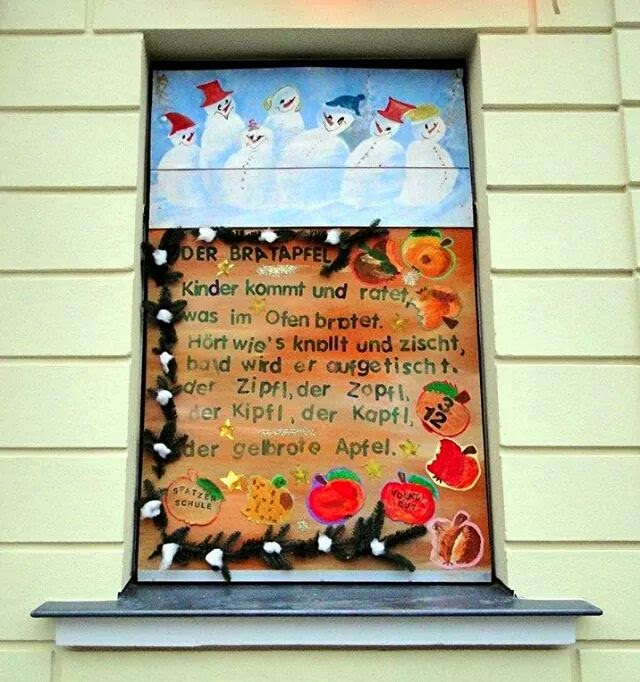 DER BRATAPFEL
Kinder kommt und ratet,
was im Ofen bratet.
Hört wie's knallt und zischt,
bald wird er aufgetischt.
der Zipfl, der Zopfl,
der Kipfl, der Kapfl,
der gelbrote Apfel.
123
SPATZEN
SCHULE
VOLKH
GUT